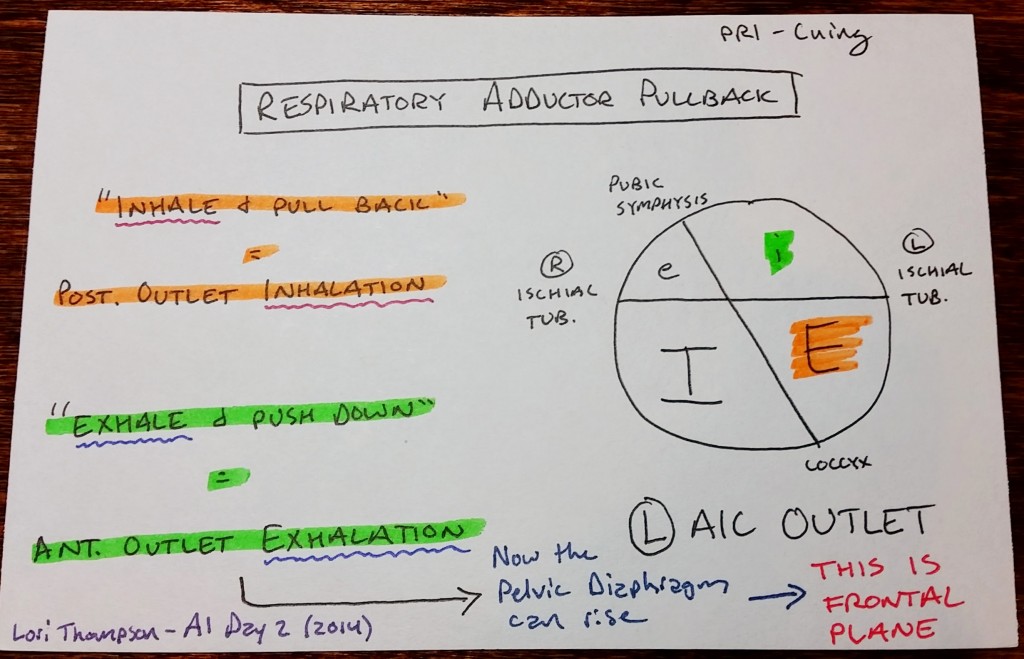 PRI - Cuing
RESPIRATORY ADDUCTOR PULLBACK
"INHALE & PULL BACK"
=
POST. OUTLET INHALATION
"EXHALE & PUSH DOWN"
=
ANT. OUTLET EXHALATION
PUBIC
SYMPHYSIS
R
ISCHIAL
TUB.
L
ISCHIAL
TUB.
e
i
I
E
COCCYX
L AIC OUTLET
Now the
Pelvic Diaphragm
can rise
THIS IS
FRONTAL
PLANE
Lori Thompson - AI Day 2 (2014)